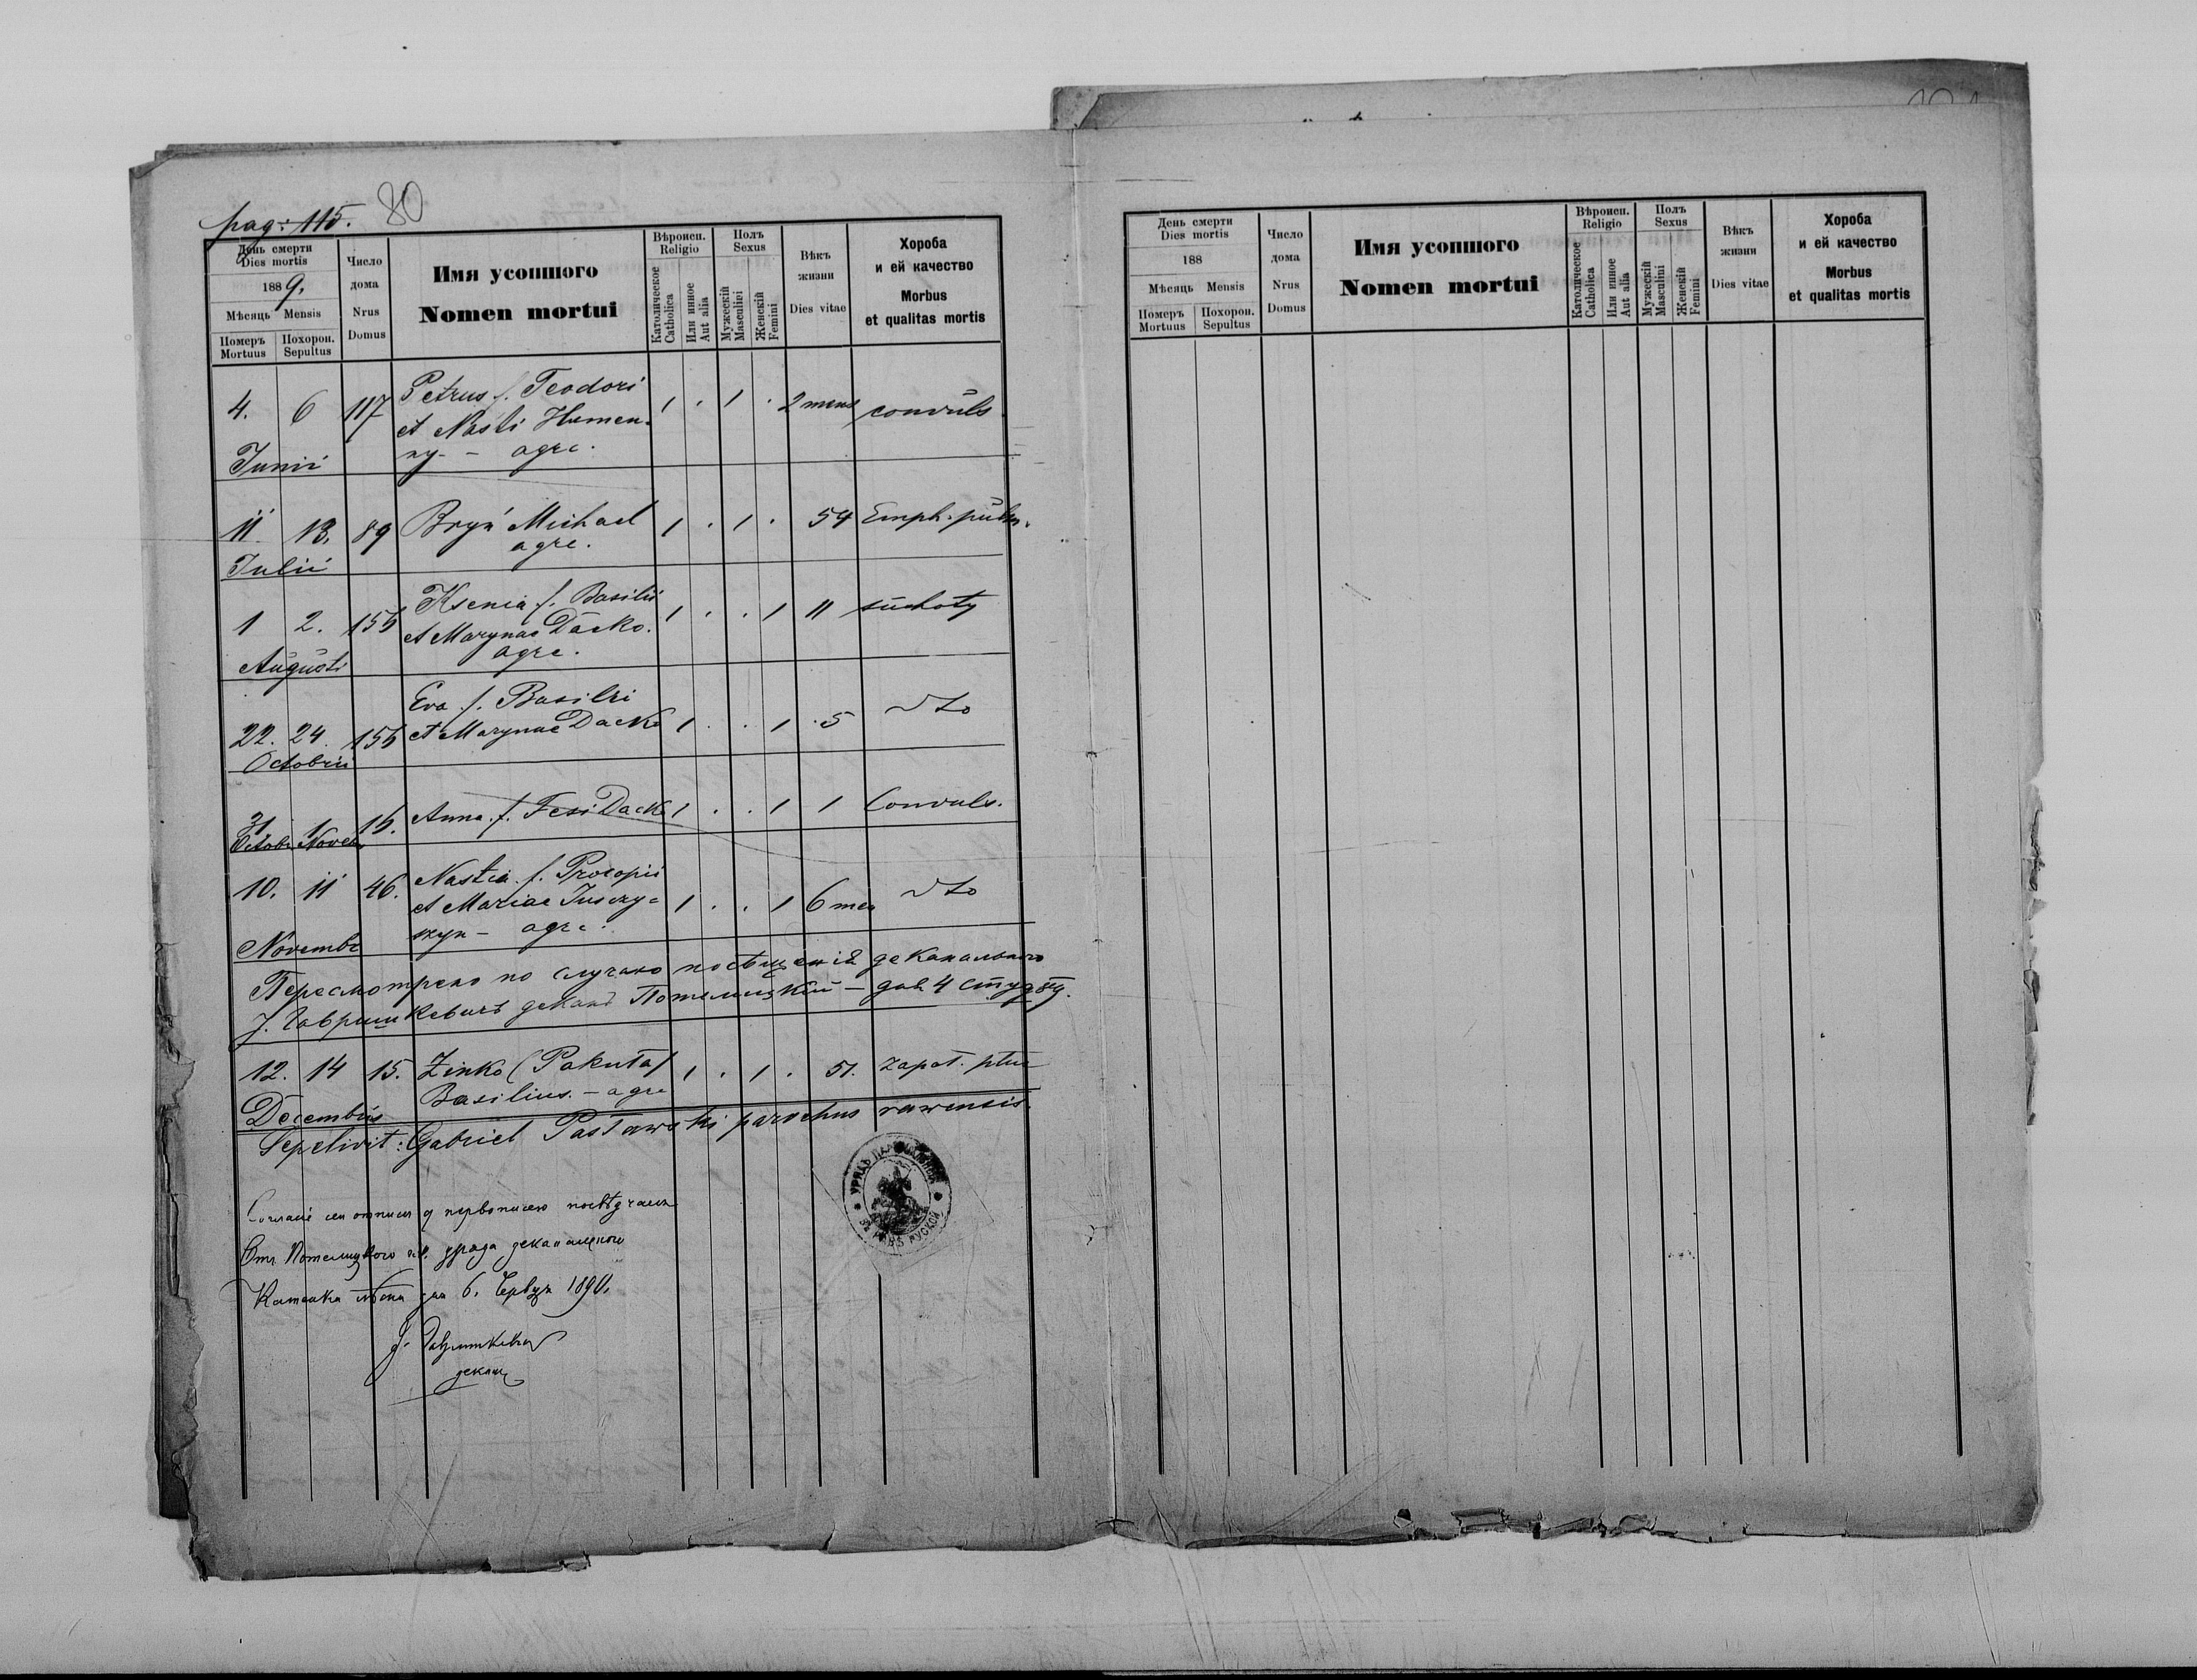 pag: 115. 80
День смерти
Dies mortis
1889.
Мѣсяць Mensis
Померъ Mortuus
Похорон. Sepultus
Число дома
Nrus Domus
Имя усопшого
Nomen mortui
Вѣроисп. Religio
Католическое Catholica
Или инное Aut alia
Полъ Sexus
Мужескій Masculini
Женскій Femini
Вѣкъ жизни
Dies vitae
Хороба и ей качество
Morbus et qualitas mortis
4. 6 117 Petrus f. Teodori 1 . 1 . 2 mens convuls
et Nasti Humen-
ny - agrc.
Junii
11. 13. 89 Bryń Michael 1 . 1 . 54 Emph. pulm.
agrc.
Julii
1 2. 155 Ksenia f. Basilii 1 . . 1 11 suchoty
et Marynae Dacko.
agrc.
Augusti
22. 24. 155 Eva f. Basilii 1 . . 1 5 dto
et Marynae Dacko
Octobris
31 1 15. Anna f. Fesi Dacko 1 . . 1 1 Convuls.
Octobr Novem
10. 11 46. Nastia f. Procopii 1 . . 1 6 mes dto
et Mariae
agrc.
Novembr
Пересмотрено по случаю посѣщенія деканального
J. Гавришкевичъ деканъ Потелицкій — дав. 4 Студ 89.
12. 14 15. Zinko (Pakuta) 1 . 1 . 51. zapal. płuc
Basilius. - agrc
Decembris
Sepelivit: Gabriel Pasławski parochus rawensis.
сей отписи с первописею посвѣдчаю
Отъ Потелицкого гк. уряда деканального
Каменка дня 6. Червця 1890.
J. Гавришкевич
декан
УРЯДЪ ПАРОХІАЛЬНЫЙ
РУСКОЙ
День смерти
Dies mortis
188
Мѣсяць Mensis
Померъ Mortuus
Похорон. Sepultus
Число дома
Nrus Domus
Имя усопшого
Nomen mortui
Вѣроисп. Religio
Католическое Catholica
Или инное Aut alia
Полъ Sexus
Мужескій Masculini
Женскій Femini
Вѣкъ жизни
Dies vitae
Хороба и ей качество
Morbus et qualitas mortis